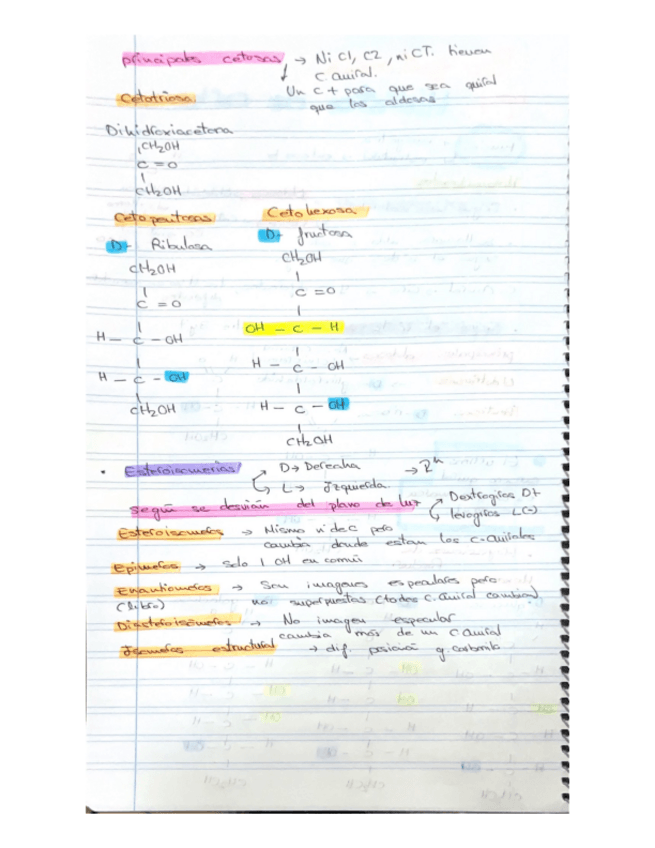 principales cetosas → Ni C1, C2, ni CT. tienen
C quiral.
Un C + para que sea quiral
que las aldosas
Cetotriosa
Dihidroxiacetona
CH2OH
C = O
CH2OH
Cetopentosas Cetohexosa
D- Ribulosa D- fructosa
CH2OH CH2OH
C = O C = O
H - C - OH OH - C - H
H - C - OH H - C - OH
CH2OH H - C - OH
CH2OH
• Esteroisomerias D → Derecha → 2^n
L → Izquierda
según se desvian del plano de luz Dextrogiros D+
levogiros L(-)
Esteroisomeros → Mismo nº de C pero
cambia donde estan los c-quirales
Epimeros → solo 1 OH en común
Enantiomeros → Son imagenes especulares pero
(libro) no superpuestas (todos C. quiral cambian)
Diasteroisómeros → No imagen especular
cambia más de un C quiral
Isomeros estructural → dif. posición g. carbonilo